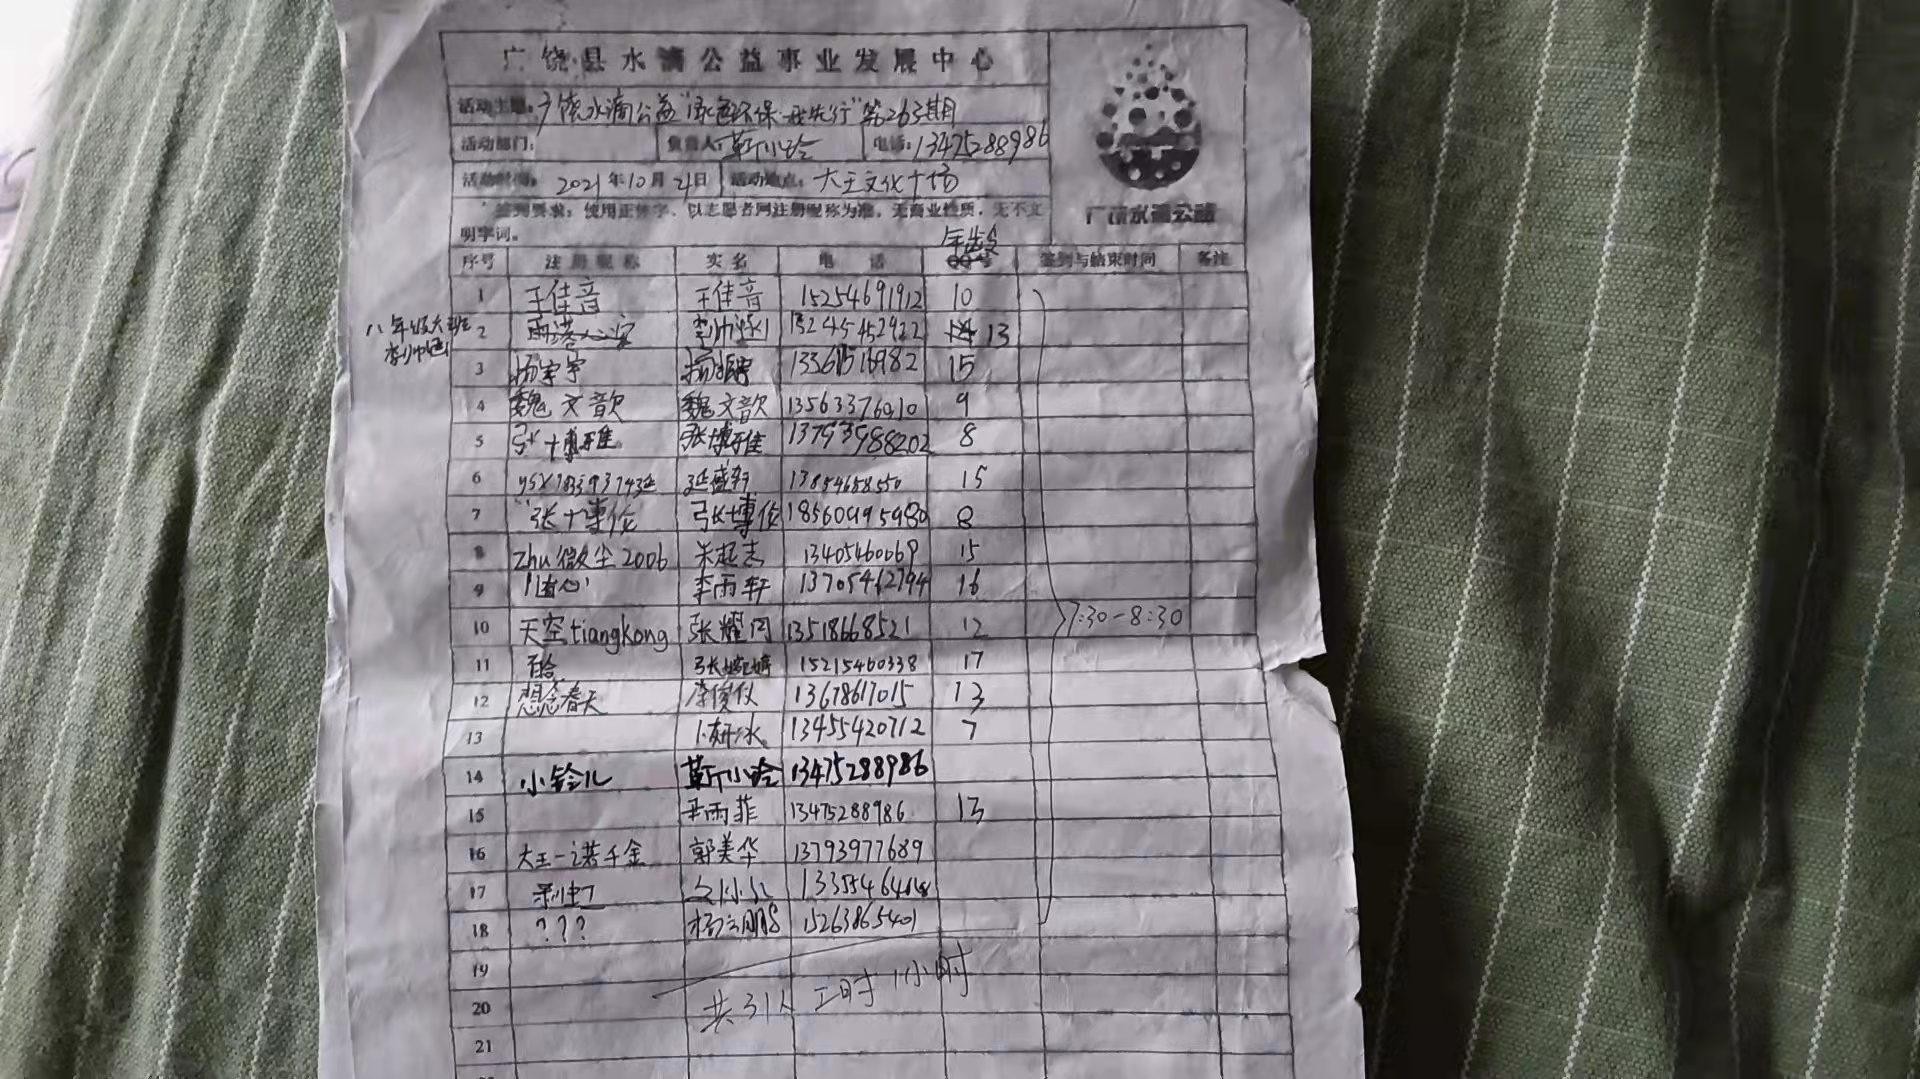 广饶县水滴公益事业发展中心
活动主题：广饶水滴公益"绿色环保·我先行"第263期
活动部门： 负责人：靳小玲 电话：13475288986
活动时间：2021年10月21日 活动地点：大王文化广场
签到要求：使用正体字，以志愿者网注册昵称为准，无商业性质，无不文
明字词。
广饶水滴公益
年龄
序号 注册昵称 实名 电话 QQ号 签到与结束时间 备注
1 王佳音 王佳音 15254691912 10
八年级大班
2 李帅 13245452922 13
3 杨宇宇 13361516982 15
4 魏文歆 魏文歆 13563376910 9
5 张博雅 张博雅 13793988202 8
6 延盛轩 13854658550 15
7 张博俊 张博俊 18560495980 8
8 Zhu微尘2006 朱起志 13405460069 15
9 李雨轩 13705462794 16
10 天空tiangkong 张耀月 13518668521 12 7:30-8:30
11 15215460338 17
12 想念春天 李俊仪 13678617015 13
13 卜妍冰 13455420712 7
14 小铃儿 靳小玲 13475288986
15 雨菲 13475288986 13
16 大王一诺千金 郭美华 13793977689
17
18 ??? 杨 鹏 15263865401
19
20 共31人 工时1小时
21